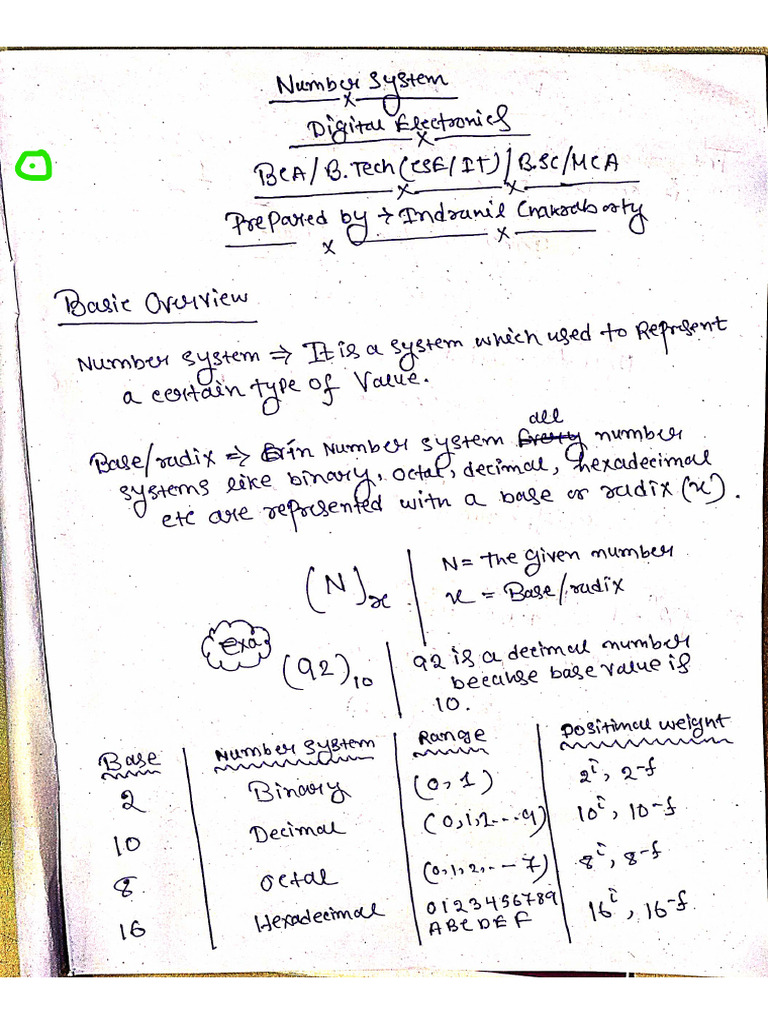 Number System
Digital Electronics
BCA/B.Tech(CSE/IT)/B.SC/MCA
Prepared by → Indranil Chakraborty
Basic Overview
Number System ⇒ It is a system which used to Represent
a certain type of Value.
all
Base/radix ⇒ in Number system Every number
systems like binary, octal, decimal, hexadecimal
etc are represented with a base or radix (x).
(N)x
N = the given number
x = Base/radix
exa
(92)10
92 is a decimal number
because base value is
10.
Base Number System Range Positinal weight
2 Binary (0, 1) 2^i, 2^-f
10 Decimal (0,1,2...9) 10^i, 10^-f
8 octal (0,1,2,..-7) 8^i, 8^-f
16 Hexadecimal 0123456789 16^i, 16^-f
ABCDEF